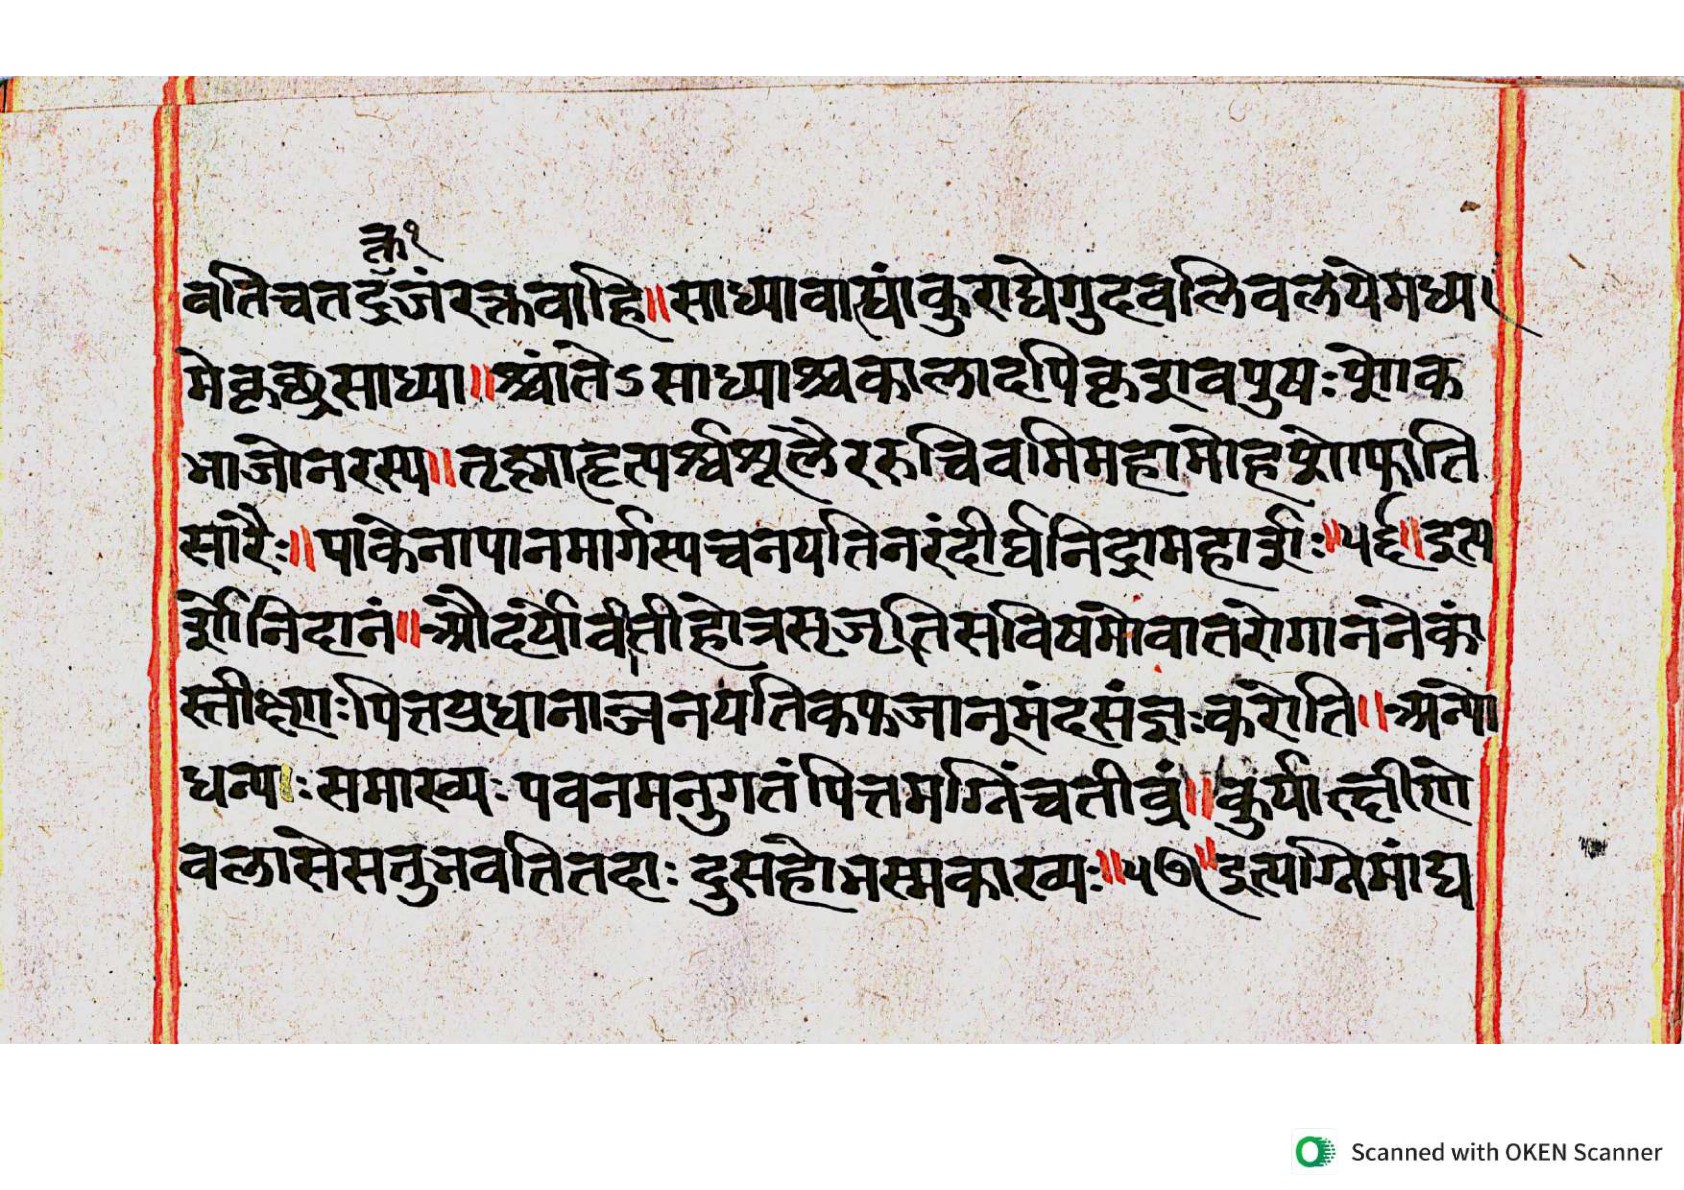 क्त१
वतिचतद्रुजंरक्तवाहि॥साध्यावाद्यांकुराद्येगुदवलिवलयेमध्य
मेकृछ्रसाध्या॥श्चांतेऽसाध्याश्चकालादपिकृशवपुषःशोक
भाजोनरस्य॥तृष्णाहृत्पार्श्वशूलैररुचिवमिमहामोहशोफाति
सारैः॥पाकेनापानमार्गस्पचनयतिनरंदीर्घनिद्रामहार्शः॥५६॥इत्य
र्शोनिदानं॥औदर्योवीतीहोत्रसृजतिसविषमोवातरोगाननेकां
स्तीक्ष्णःपित्तप्रधानाञ्जनयतिकफजानूमंदसंज्ञःकरोति॥अन्यो
धन्यःसमाख्यःपवनमनुगतंपित्तमग्निंचतीव्रं॥कुर्यात्क्षीणे
वलासेसतुभवतितदाःदुसहोभस्मकाख्यः॥५७॥इत्यग्निमांद्य
Scanned with OKEN Scanner